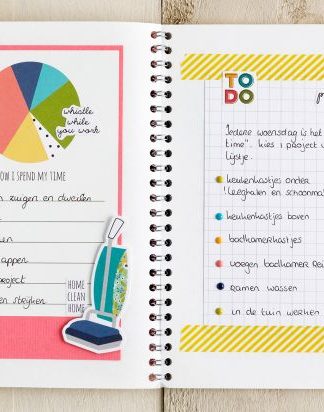 whistle
while
you work
OW I SPEND MY TIME
n zuigen en dweilen
en
appen
project
en strijken
HOME
CLEAN
HOME
TO
DO
Iedere woensdag is het
time". kies 1 project u
lijstje.
keukenkastjes onder
"leeghalen en schoonma
keukenkastjes boven
badkamerkastjes
voegen badkamer
ramen wassen
in de tuin werken